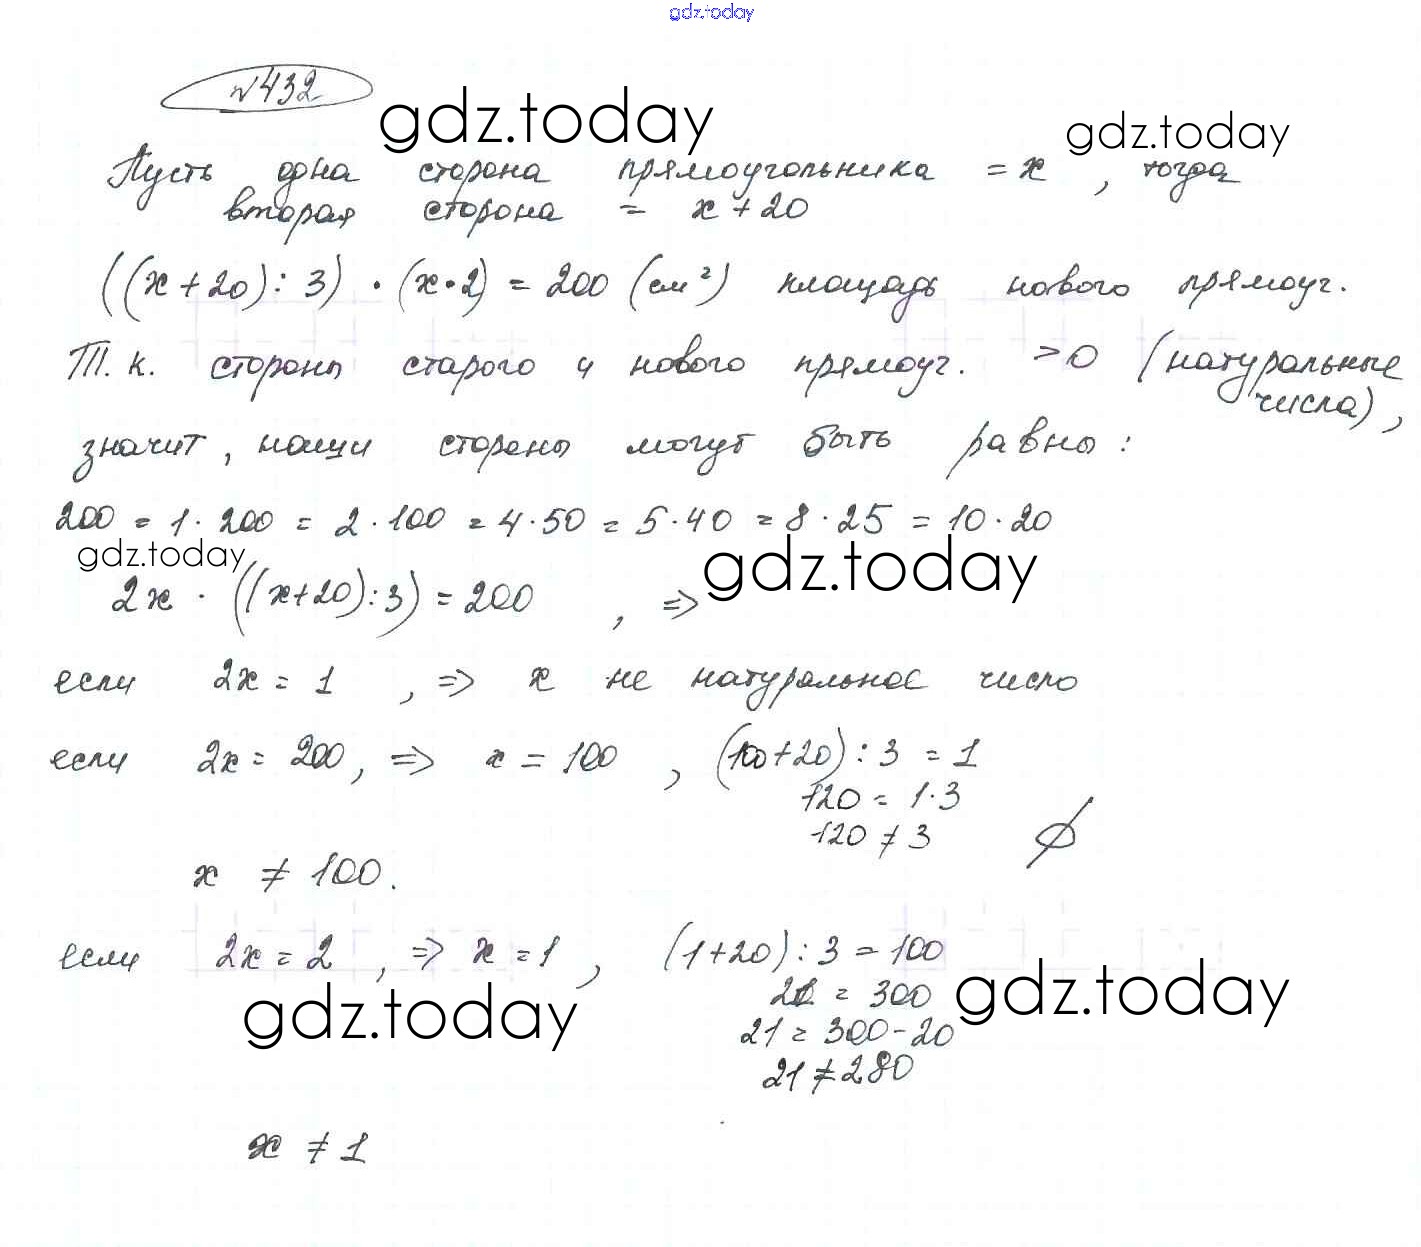 gdz.today
№432
gdz.today
gdz.today
Пусть одна сторона прямоугольника = x , тогда
вторая сторона = x + 20
((x + 20) : 3) · (x · 2) = 200 (см²) площадь нового прямоуг.
Т. к. стороны старого и нового прямоуг. > 0 (натуральные
числа),
значит, наши стороны могут быть равны :
200 = 1 · 200 = 2 · 100 = 4 · 50 = 5 · 40 = 8 · 25 = 10 · 20
gdz.today
gdz.today
2x · ((x+20) : 3) = 200 , =>
если 2x = 1 , => x не натуральное число
если 2x = 200, => x = 100 , (100+20) : 3 = 1
120 = 1·3
120 ≠ 3
∅
x ≠ 100.
если 2x = 2 , => x = 1 , (1+20) : 3 = 100
gdz.today
gdz.today
21 = 300
21 = 300 - 20
21 ≠ 280
x ≠ 1